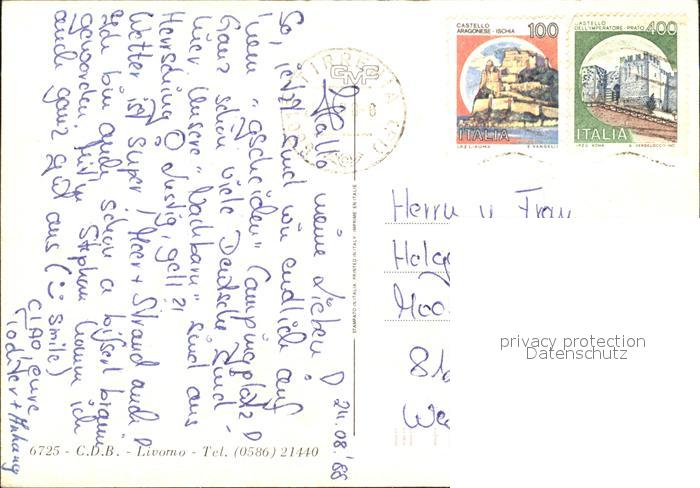 CASTELLO
ARAGONESE - ISCHIA
100
ITALIA
I.P.Z.S. - ROMA
E. VANGELLI
CASTELLO
DELL'IMPERATORE - PRATO
400
ITALIA
I.P.Z.S. ROMA
CMP
24.08.'88
Hallo meine Lieben
So, jetzt sind wir endlich auf
'nem "gscheiden" Campingplatz
Ganz schön viele Deutsche sind
hier. Unsere "Nachbarn" sind aus
Herrsching lustig, gell?!
Wetter ist super, Meer + Strand auch
Ich bin auch schon a bisserl braun
geworden. Für Stephan komm ich
auch ganz gut aus (smile)
CIAO, eure
Tochter + Anhang
STAMPATO IN ITALIA PRINTED IN ITALY IMPRIME EN ITALIE
Herrn u Frau
Holg
Moo
We
privacy protection
Datenschutz
6725 - C.D.B. - Livorno - Tel. (0586) 21440